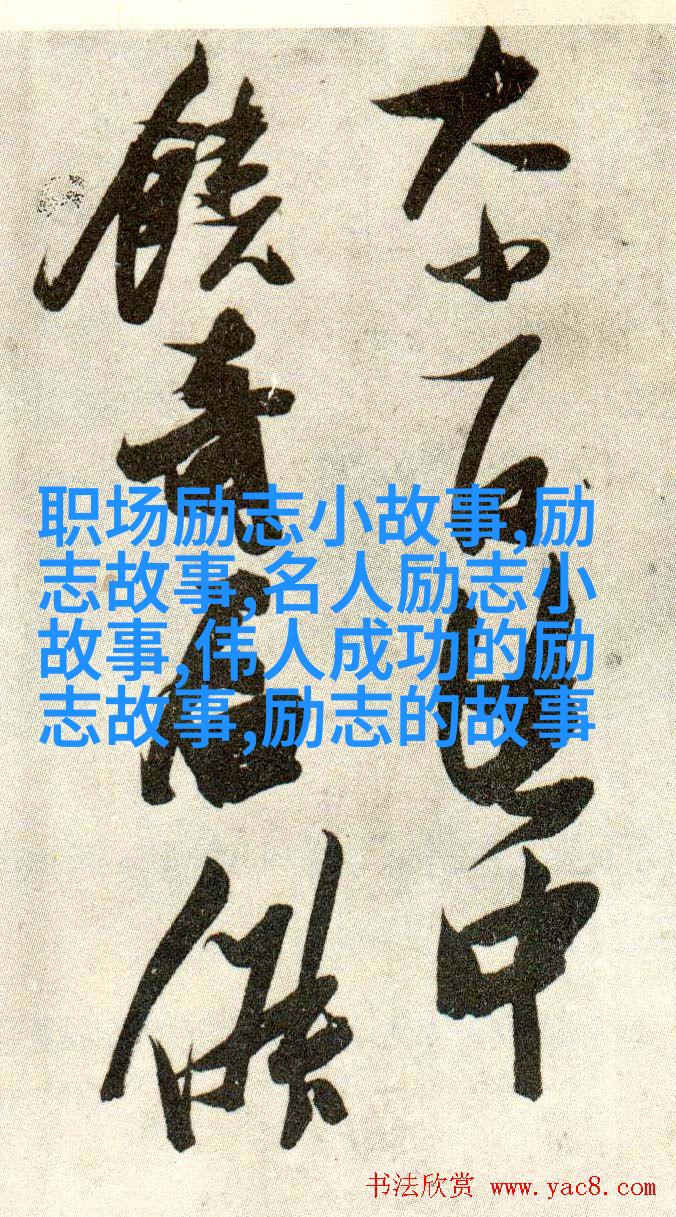 大小百中
饒奇
职场励志小故事,励
志故事,名人励志小
故事,伟人成功的励
志故事,励志的故事
书法欣赏 www.yac8.com